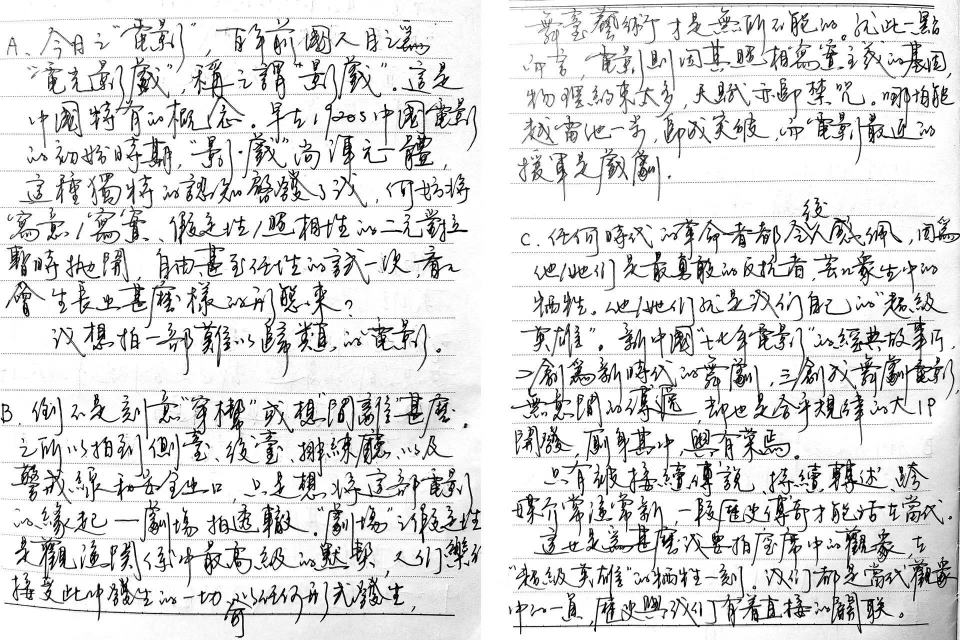 A. 今日之“電影”，百年前國人目之為
“電光影戲”，稱之謂“影戲”。這是
中國特有的概念。早在1905中國電影
的初始時期，“影·戲”尚渾元一體，
這種獨特的認知啓發了我，何妨將
寫意/寫實、假定性/照相性的二元對立
暫時拋開，自由、甚至任性的試一次，看它
會生長出甚麼樣的形態來？
我想拍一部難以歸類的“電影”。
B. 倒不是刻意“穿幫”或想“間離”甚麼。
之所以拍到側臺、後臺、排練廳、以及
警戒線和安全出口，只是想將這部電影
的緣起——劇場拍透徹。“劇場”之假定性
是觀演關係中最高級的默契，人們樂於
接受此中發生的一切，可以任何形式發生，
舞臺藝術才是無所不能的。就此一點
而言，電影則因其照相寫實主義的基因，
物理約束太多，天賦亦即禁咒。哪怕能
越雷池一步，即成突破，而電影最近的
援軍是戲劇。
C. 任何時代的革命者都令後人感佩，因為
他/她們是最勇敢的反抗者，芸芸衆生中的
犧牲。他/她們就是我們自己的“超級
英雄”。新中國“十七年電影”的經典故事片，
二創為新時代的舞劇，三創成舞劇電影，
無意間的傳遞，却也是合乎規律的大IP
開發，廁身其中，與有榮焉。
只有被接續傳說、持續轉述、跨
媒介常演常新，一段歷史傳奇才能活在當代。
這也是為甚麼我要拍坐席中的觀衆，在
“超級英雄”的犧牲一刻，我們都是當代觀衆
中的一員，歷史與我們有着直接的關联。